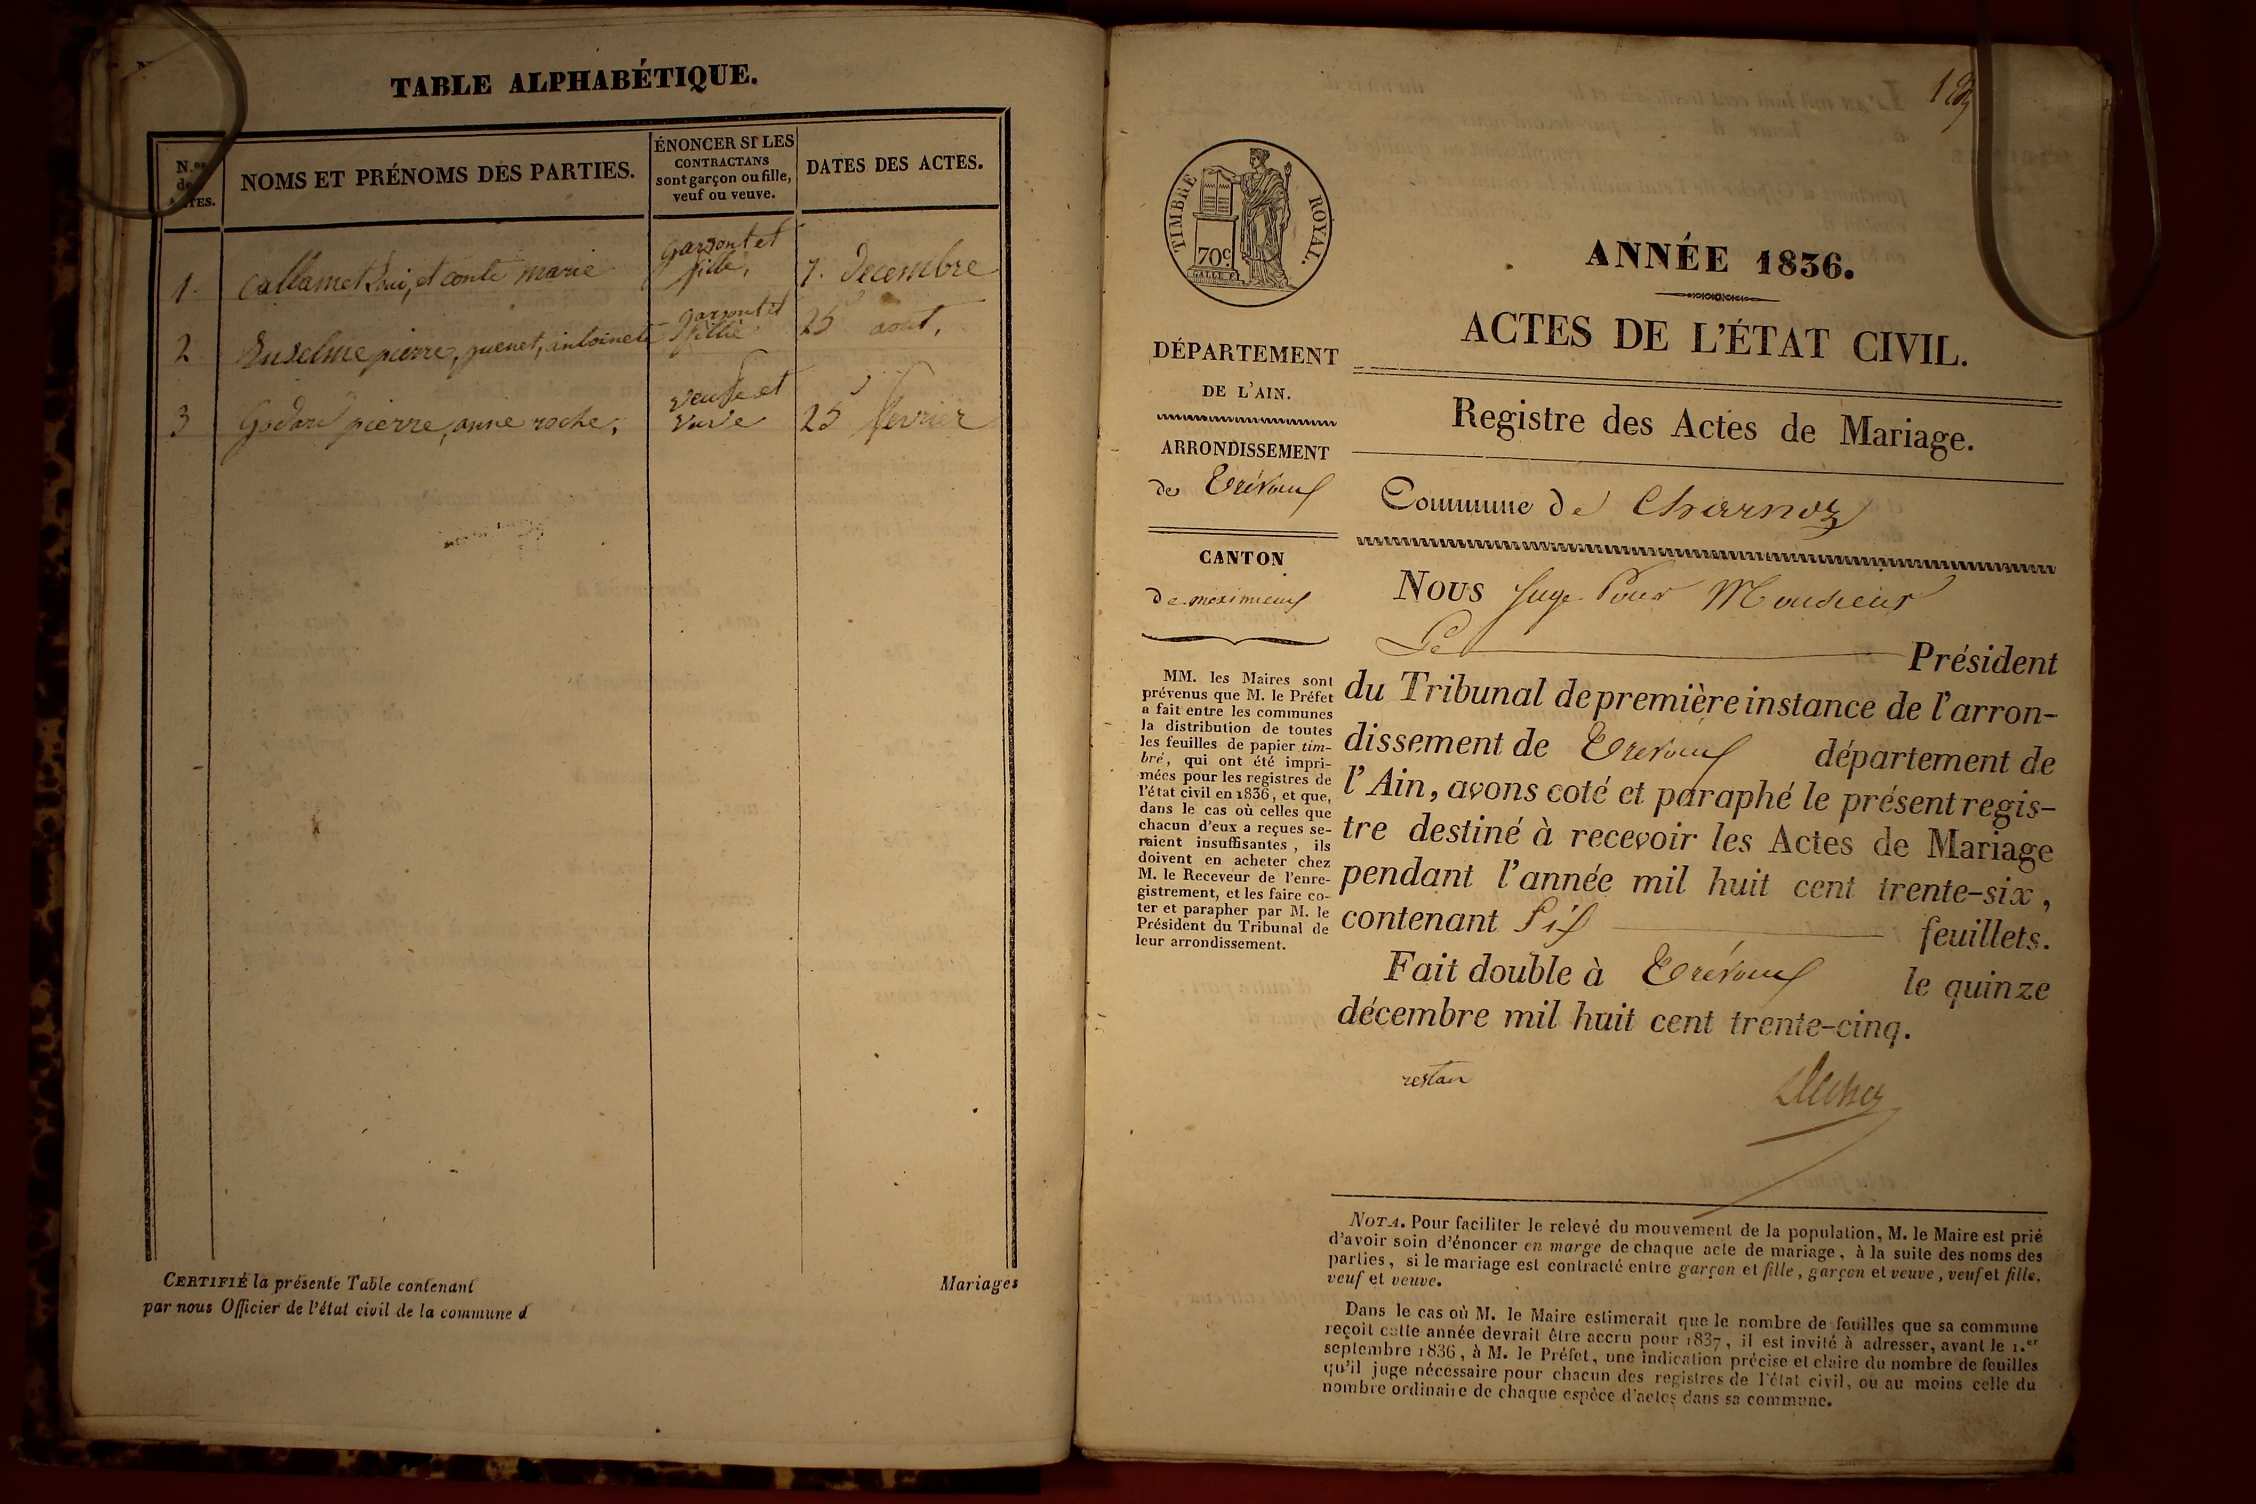 TABLE ALPHABÉTIQUE.
NOMS ET PRÉNOMS DES PARTIES.
ÉNONCER SI LES
CONTRACTANS
sont garçon ou fille,
veuf ou veuve.
DATES DES ACTES.
1. Callamet Loui, et conte marie garsont et fille, 7. decembre
2 Enselme pierre, guenet, antoinete garsont et fillie 25 aout,
3 Godard pierre, anne roche, veufe et veuve 25 fevrier
CERTIFIÉ la présente Table contenant Mariages
par nous Officier de l'état civil de la commune d
TIMBRE ROYAL.
70c.
ANNÉE 1836.
ACTES DE L'ÉTAT CIVIL.
DÉPARTEMENT
DE L'AIN.
ARRONDISSEMENT
de Trévoux
CANTON
De meximieux
MM. les Maires sont
prévenus que M. le Préfet
a fait entre les communes
la distribution de toutes
les feuilles de papier tim-
bré, qui ont été impri-
mées pour les registres de
l'état civil en 1836, et que,
dans le cas où celles que
chacun d'eux a reçues se-
raient insuffisantes, ils
doivent en acheter chez
M. le Receveur de l'enre-
gistrement, et les faire co-
ter et parapher par M. le
Président du Tribunal de
leur arrondissement.
Registre des Actes de Mariage.
Commune de Charnoz
Nous Juge Pour Monsieur
Le Président
du Tribunal de première instance de l'arron-
dissement de Trevoux département de
l'Ain, avons coté et paraphé le présent regis-
tre destiné à recevoir les Actes de Mariage
pendant l'année mil huit cent trente-six,
contenant Six feuillets.
Fait double à Trévoux le quinze
décembre mil huit cent trente-cinq.
restan
NOTA. Pour faciliter le relevé du mouvement de la population, M. le Maire est prié
d'avoir soin d'énoncer en marge de chaque acte de mariage, à la suite des noms des
parties, si le mariage est contracté entre garçon et fille, garçon et veuve, veuf et fille,
veuf et veuve.
Dans le cas où M. le Maire estimerait que le nombre de feuilles que sa commune
reçoit cette année devrait être accru pour 1837, il est invité à adresser, avant le 1.er
septembre 1836, à M. le Préfet, une indication précise et claire du nombre de feuilles
qu'il juge nécessaire pour chacun des registres de l'état civil, ou au moins celle du
nombre ordinaire de chaque espèce d'actes dans sa commune.